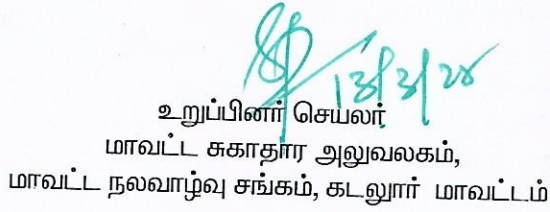 13/3/25
உறுப்பினர் செயலர்
மாவட்ட சுகாதார அலுவலகம்,
மாவட்ட நலவாழ்வு சங்கம், கடலூர் மாவட்டம்